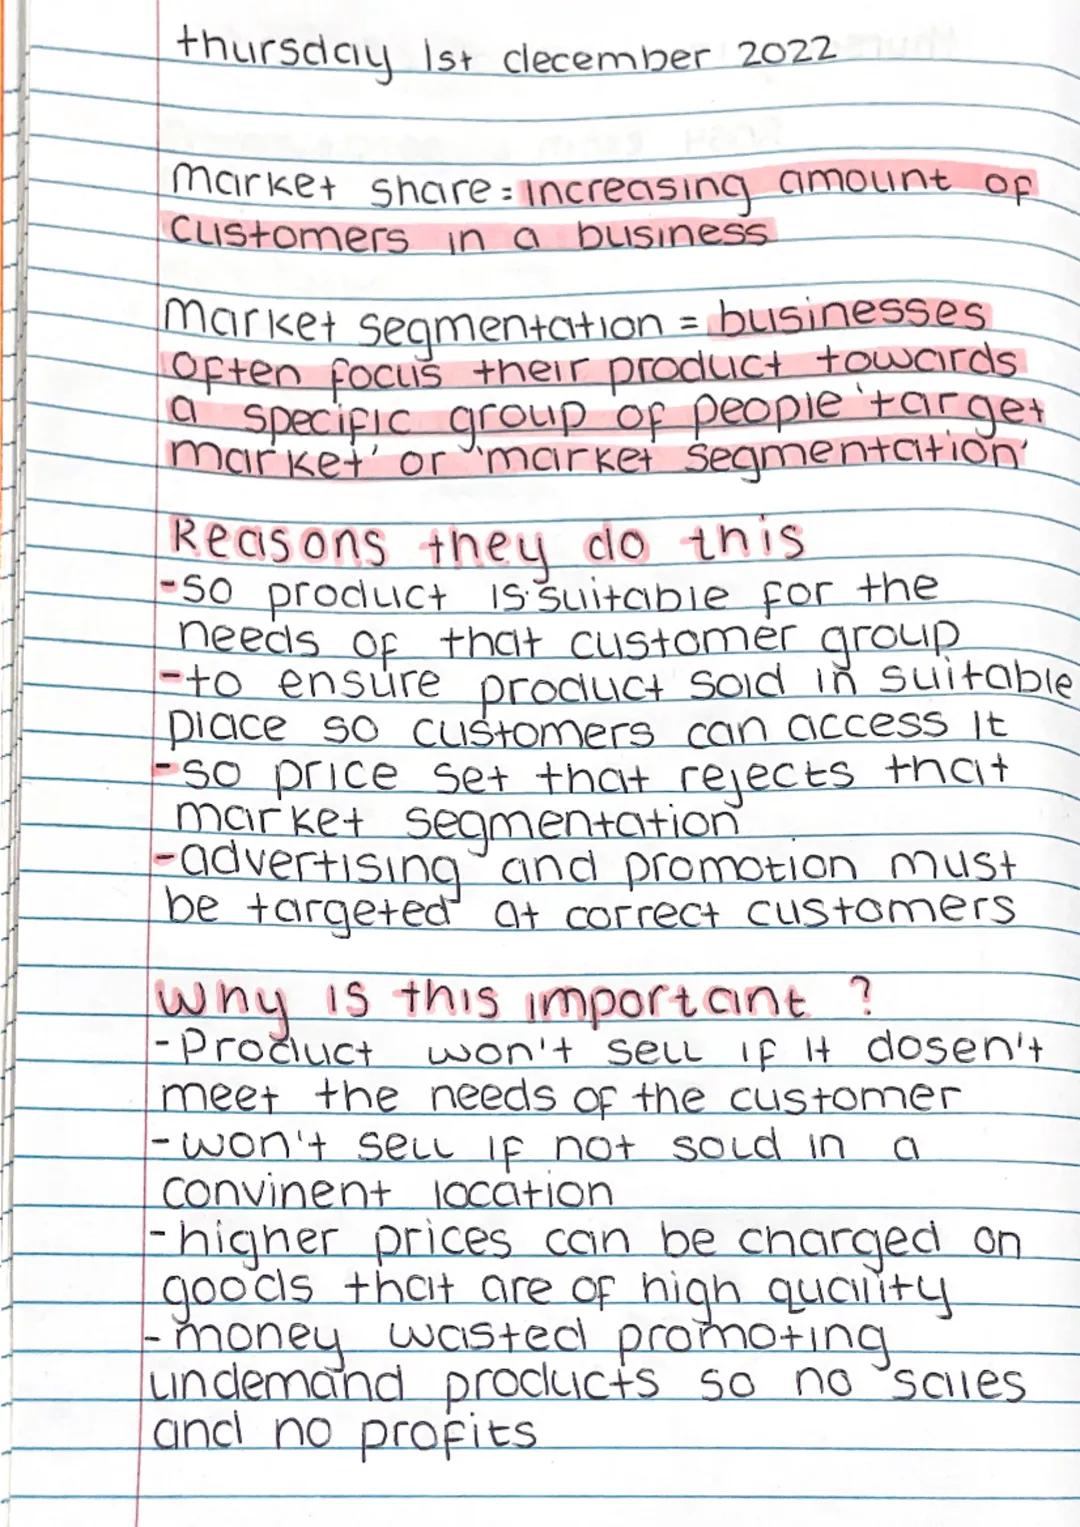 thursday 1st december 2022
market share = increasing amount of
customers in a business
market segmentation = businesses
often focus their product towards
a specific group of people 'target
market' or 'market segmentation'
Reasons they do this
-so product is suitable for the
needs of that customer group
-to ensure product sold in suitable
place so customers can access it
-so price set that rejects that
market segmentation
-advertising and promotion must
be targeted at correct customers
why is this important ?
-Product won't sell if it dosen't
meet the needs of the customer
-won't sell if not sold in a
convinent location
-higher prices can be charged on
goods that are of high quality
-money wasted promoting
undemand products so no sales
and no profits